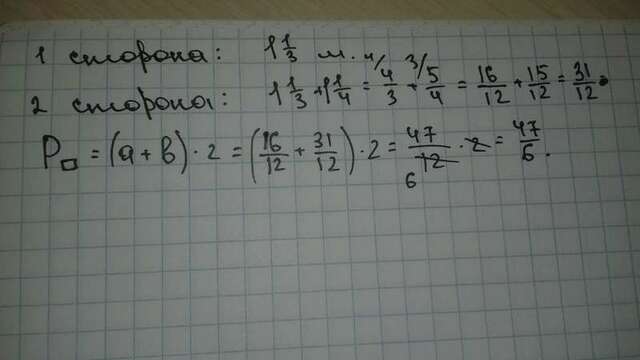 1 сторона: 1 1/3 м.
2 сторона: 1 1/3 + 1 1/4 = 4/3 + 5/4 = 16/12 + 15/12 = 31/12
P□ = (a + b) · 2 = (16/12 + 31/12) · 2 = 47/12 · 2 = 47/6.